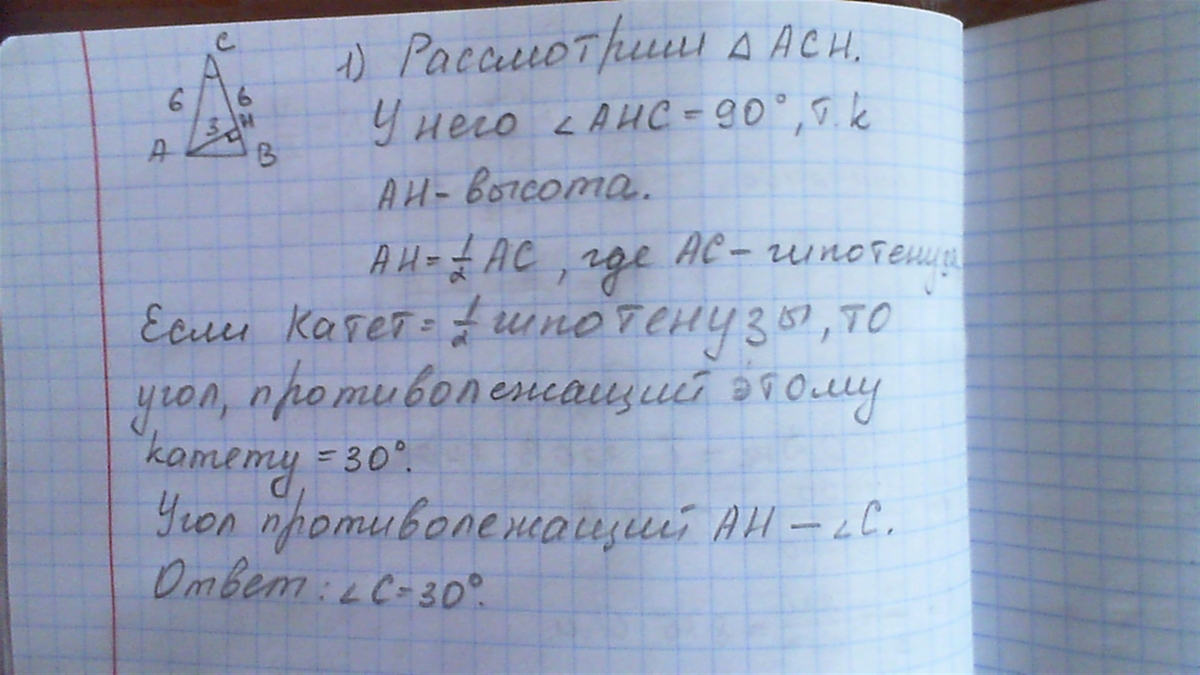 C
6 6
3 H
A B
1) Рассмотрим △ ACH.
У него ∠AHC = 90°, т.к
AH - высота.
AH = 1/2 AC , где AC - гипотенуза
Если катет = 1/2 гипотенузы, то
угол, противолежащий этому
катету = 30°.
Угол противолежащий AH - ∠C.
Ответ: ∠C = 30°.